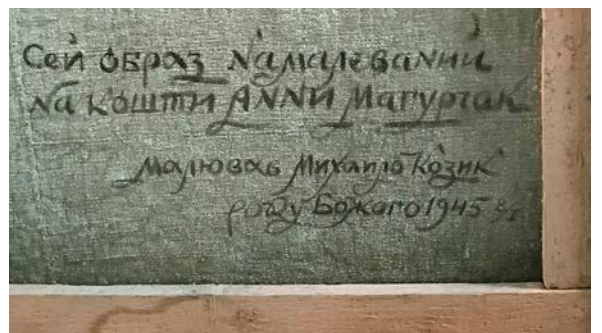 Сей образ намалеваний
на кошти Анни Магурчак
малював Михаило Козик
року Божаго 1945